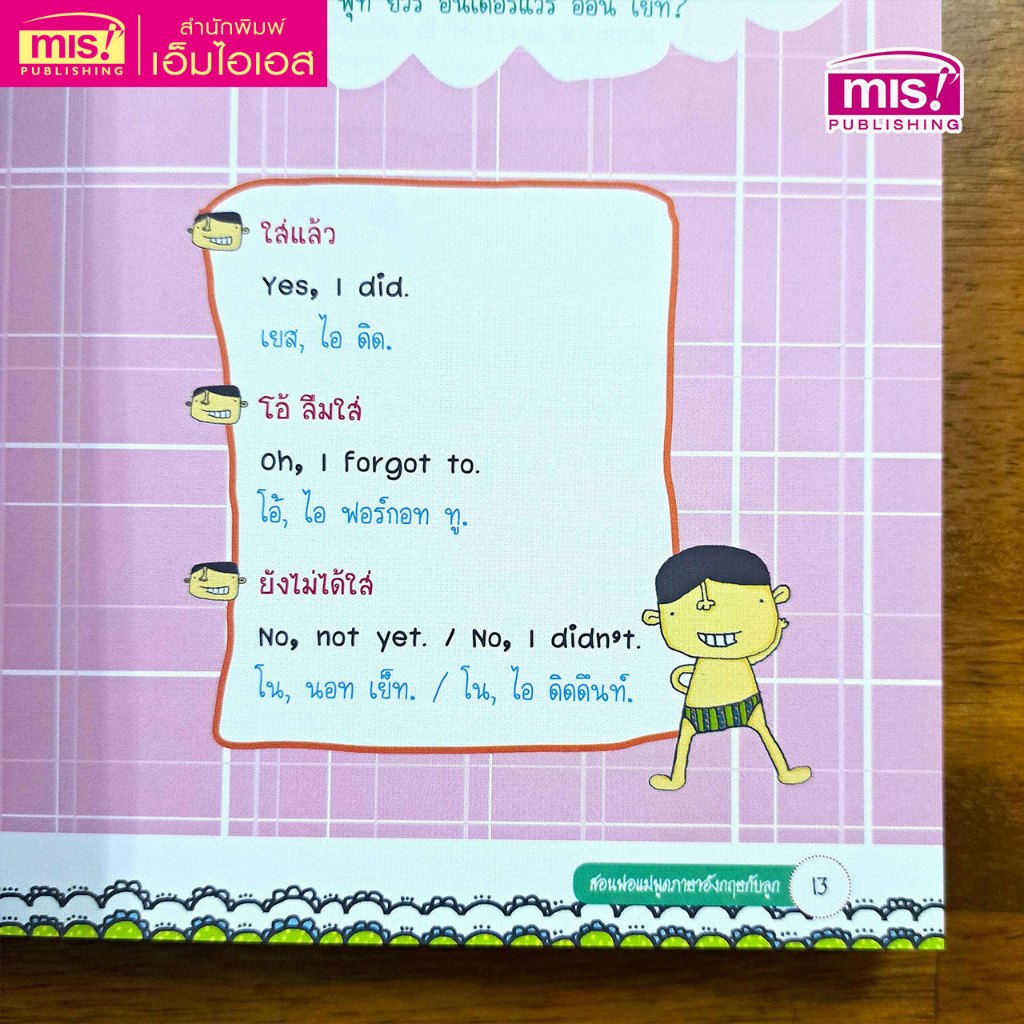 mis!
PUBLISHING
สำนักพิมพ์
เอ็มไอเอส
พุท ยัวร์ อันเดอร์แวร์ ออน เย็ท?
mis!
PUBLISHING
ใส่แล้ว
Yes, I did.
เยส, ไอ ดิด.
โอ้ ลืมใส่
Oh, I forgot to.
โอ้, ไอ ฟอร์กอท ทู.
ยังไม่ได้ใส่
No, not yet. / No, I didn't.
โน, นอท เย็ท. / โน, ไอ ดิดดึนท์.
สอนพ่อแม่พูดภาษาอังกฤษกับลูก
13